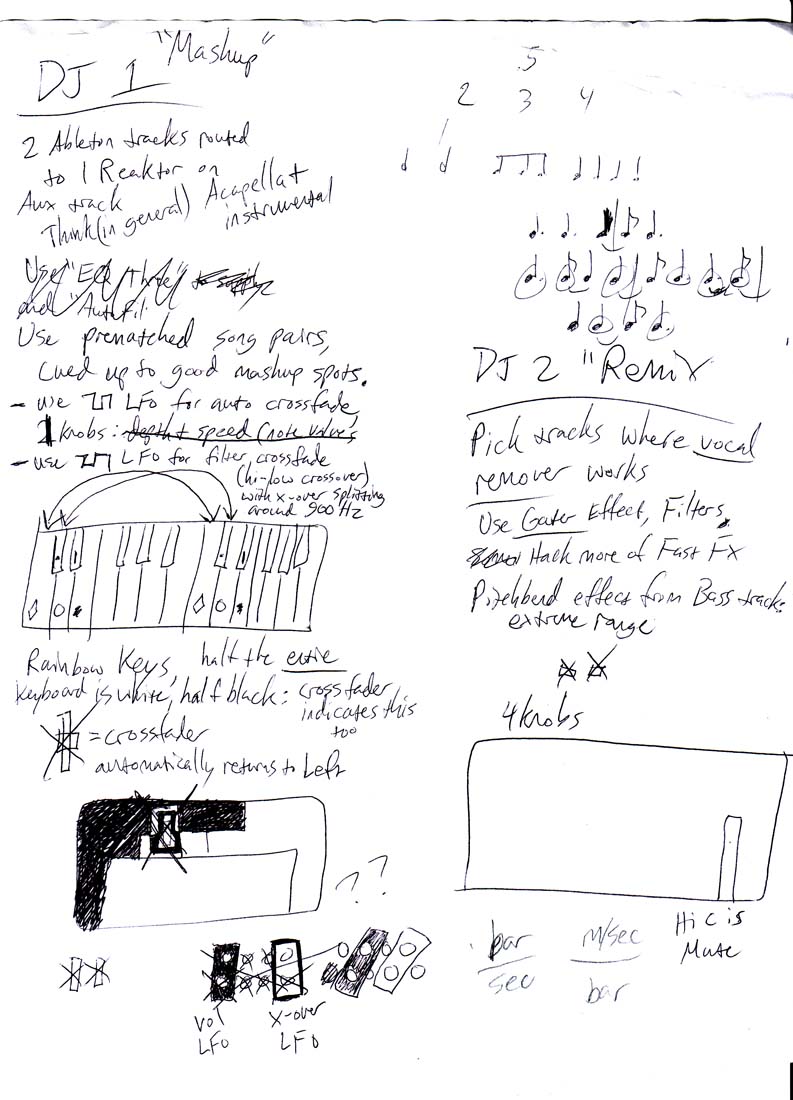 "Mashup"
DJ 1
2 Ableton tracks routed
to 1 Reaktor on
Aux track
Think (in general) Acapella +
instrumental
Use "EQ Three"
and "AutoFil
Use prematched song pairs,
Cued up to good mashup spots.
- use LFO for auto crossfade
1 knobs: depth + speed (note values
- use LFO for filter crossfade
(hi-low crossover)
with x-over splitting
around 900 Hz
Rainbow Keys, half the entire
keyboard is white, half black: crossfader
indicates this
too
= crossfader
automatically returns to Left
??
vol
LFO
x-over
LFO
5
2 3 4
DJ 2 "Remix
Pick tracks where vocal
remover works
Use Gater Effect, Filters,
Hack more of Fast FX
Pitchbend effect from Bass track:
extreme range
4 knobs
Hi C is
Mute
bar
sec
m/sec
bar